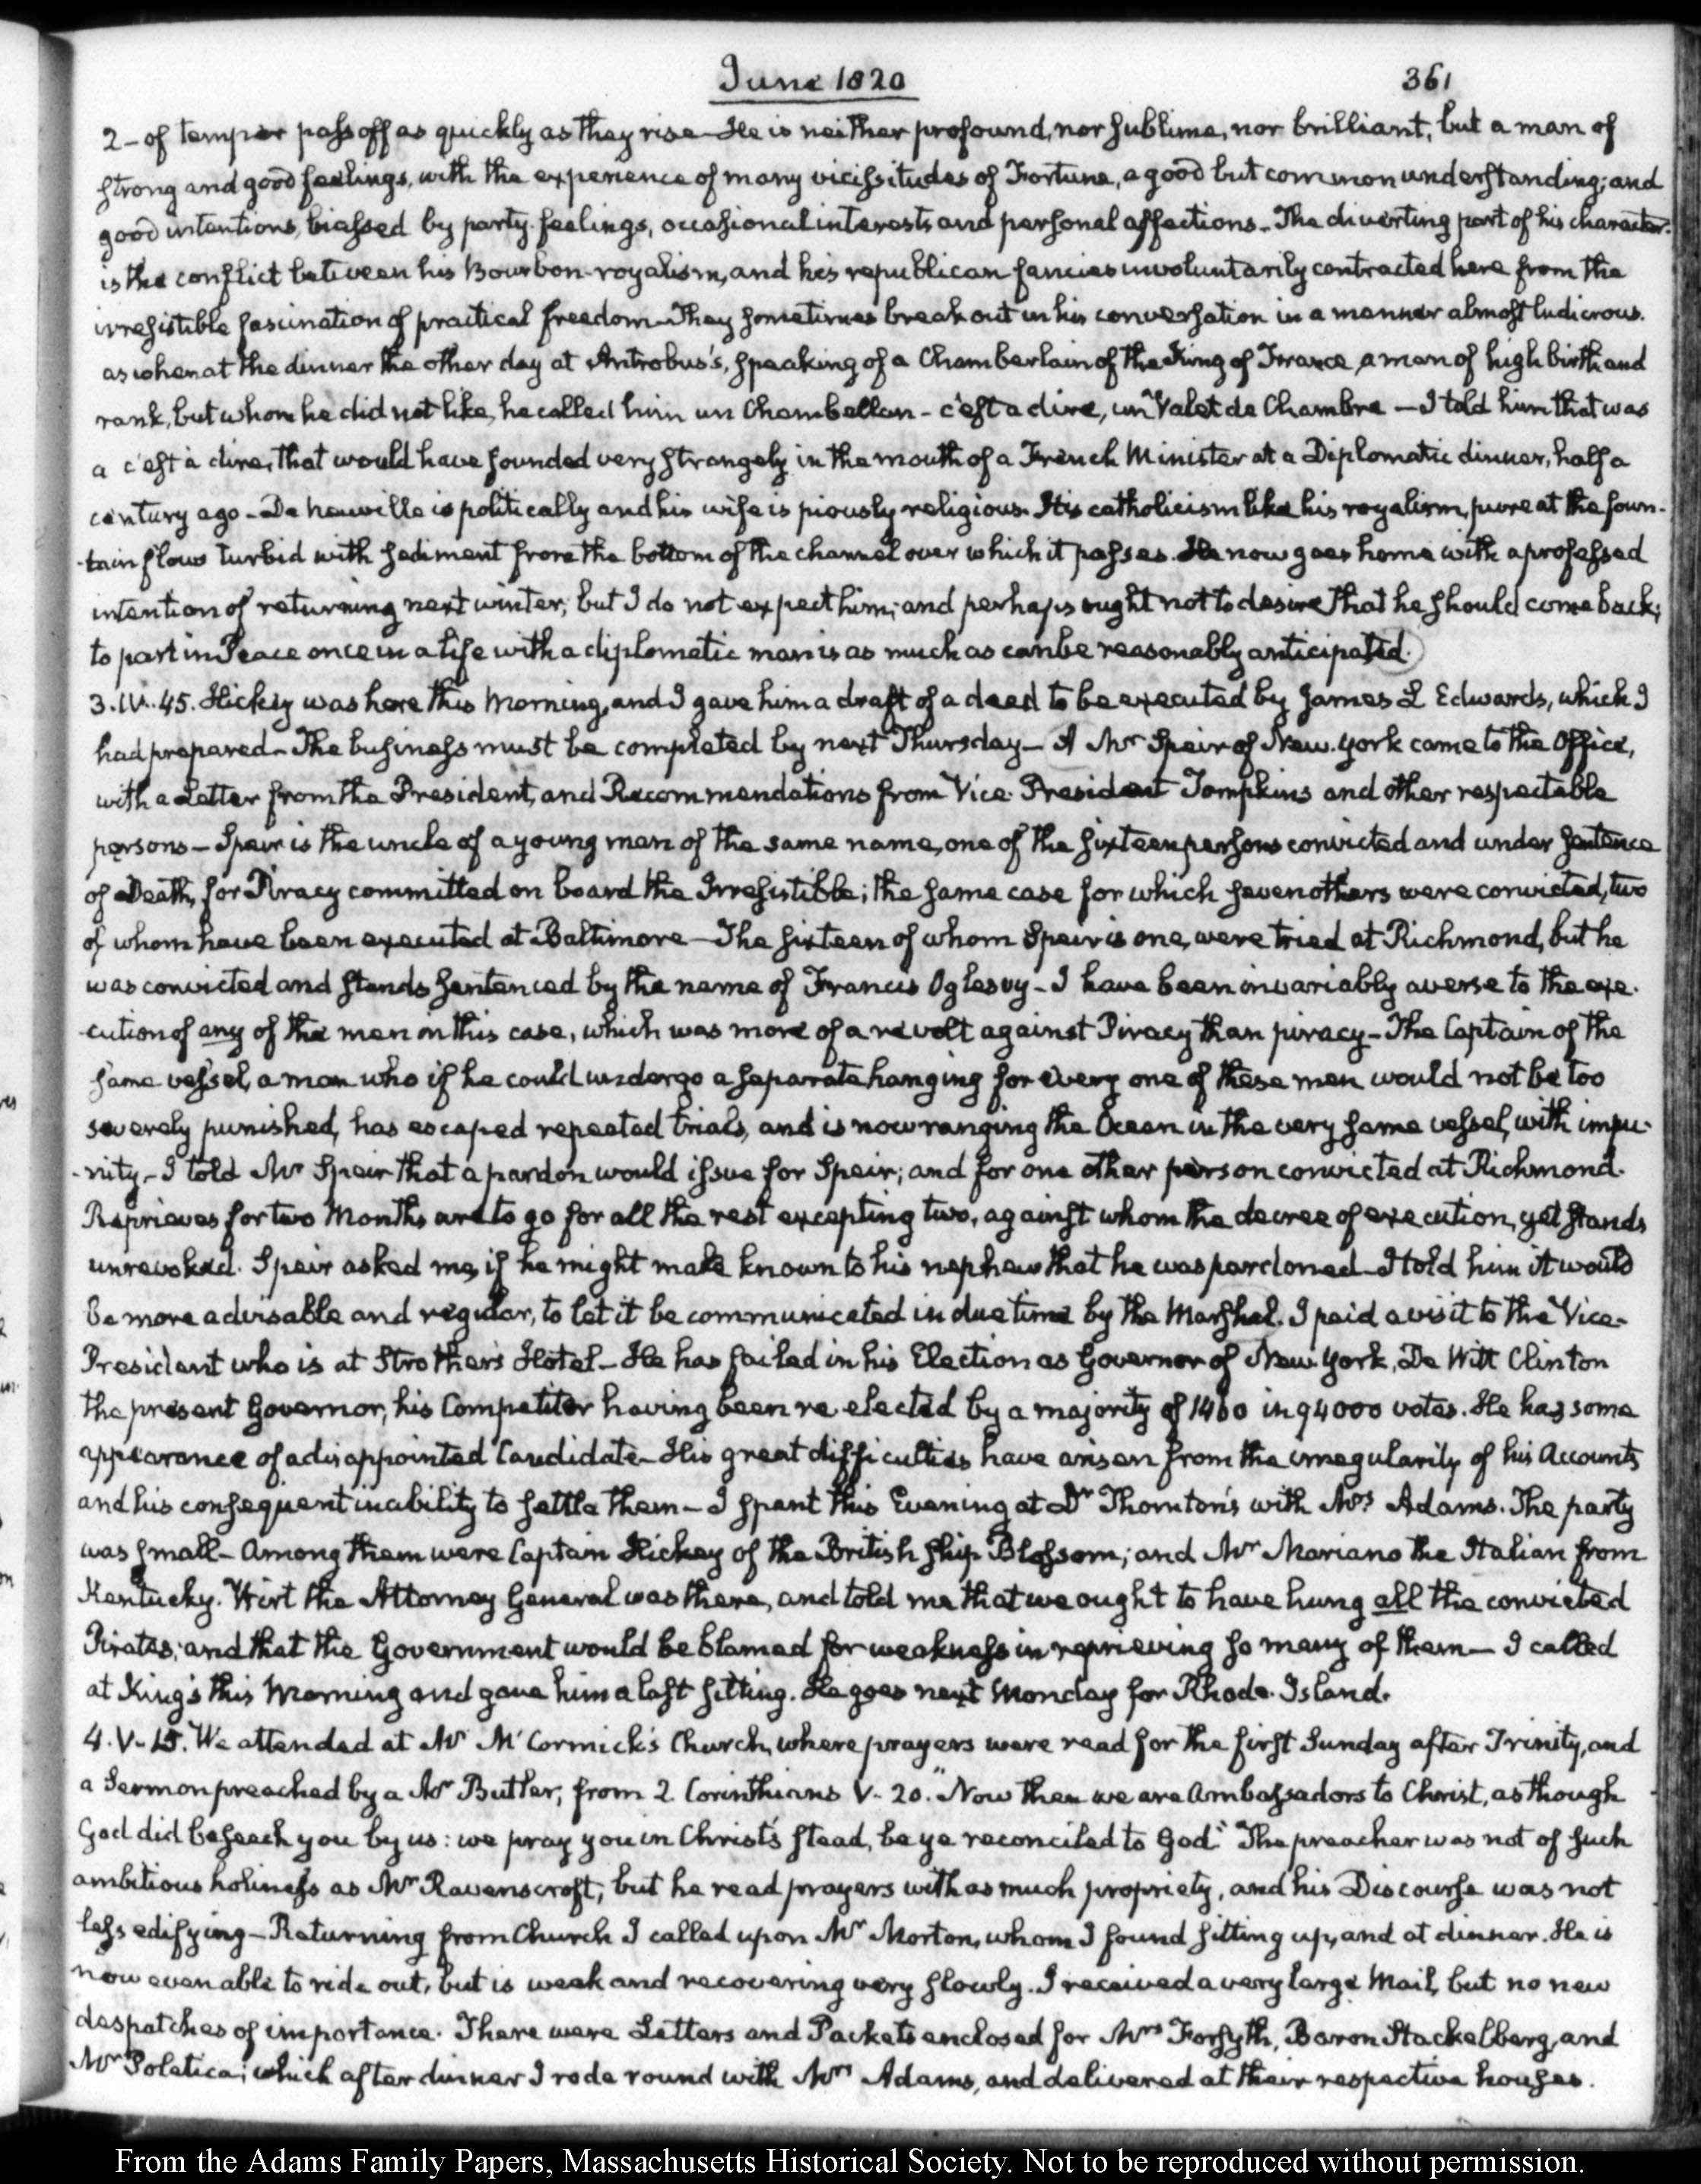 June 1820
361
2 - of temper pass off as quickly as they rise - He is neither profound, nor sublime, nor brilliant; but a man of
strong and good feelings, with the experience of many vicissitudes of Fortune, a good but common understanding; and
good intentions, biassed by party feelings, occasional interests and personal affections - The diverting part of his character.
is the conflict between his Bourbon royalism, and his republican fancies involuntarily contracted here from the
irresistible fascination of practical freedom - They sometimes break out in his conversation in a manner almost ludicrous.
as when at the dinner the other day at Antrobus's, speaking of a Chamberlain of the King of France, a man of high birth and
rank, but whom he did not like, he called him un Chambellan - c'est a dire, un Valet de Chambre — I told him that was
a c'est à dire, that would have sounded very strangely in the mouth of a French Minister at a Diplomatic dinner, half a
century ago - De Neuville is politically and his wife is piously religious. His catholicism like his royalism, pure at the foun-
-tain flows turbid with sediment from the bottom of the channel over which it passes. He now goes home with a professed
intention of returning next winter; but I do not expect him; and perhaps ought not to desire that he should come back;
to part in Peace once in a life with a diplomatic man is as much as can be reasonably anticipated.
3. IV. 45. Hickey was here this Morning, and I gave him a draft of a deed to be executed by James L Edwards, which I
had prepared - The business must be completed by next Thursday - A Mr Speir of New-York came to the Office,
with a Letter from the President, and Recommendations from Vice-President Tompkins and other respectable
persons - Speir is the uncle of a young man of the same name, one of the sixteen persons convicted and under sentence
of Death, for Piracy committed on board the Irresistible; the same case for which seven others were convicted, two
of whom have been executed at Baltimore - The sixteen of whom Speir is one, were tried at Richmond, but he
was convicted and stands sentenced by the name of Francis Oglesvy - I have been invariably averse to the exe-
-cution of any of the men in this case, which was more of a revolt against Piracy than piracy - The Captain of the
same vessel, a man who if he could undergo a separate hanging for every one of these men would not be too
severely punished, has escaped repeated trials, and is now ranging the Ocean in the very same vessel, with impu-
-nity - I told Mr Speir that a pardon would issue for Speir; and for one other person convicted at Richmond.
Reprieves for two Months are to go for all the rest excepting two, against whom the decree of execution, yet stands
unrevoked. Speir asked me, if he might make known to his nephew that he was pardoned - I told him it would
be more advisable and regular, to let it be communicated in due time by the Marshal. I paid a visit to the Vice-
President who is at Strother's Hotel - He has failed in his Election as Governor of New York, De Witt Clinton
the present Governor, his Competitor having been re-elected by a majority of 1400 in 94000 votes. He has some
appearance of a disappointed Candidate - His great difficulties have arisen from the irregularity of his Accounts,
and his consequent inability to settle them - I spent this Evening at Dr Thornton's with Mrs Adams. The party
was small - Among them were Captain Hickey of the British ship Blossom; and Mr Mariano the Italian from
Kentucky. Wirt the Attorney General was there, and told me that we ought to have hung all the convicted
Pirates; and that the Government would be blamed for weakness in reprieving so many of them — I called
at King's this Morning and gave him a last sitting. He goes next Monday for Rhode-Island.
4. V-15. We attended at Mr McCormick's Church, where prayers were read for the first Sunday after Trinity, and
a Sermon preached by a Mr Butler; from 2. Corinthians V. 20. "Now then we are Ambassadors to Christ, as though
God did beseech you by us: we pray you in Christ's stead, be ye reconciled to God." The preacher was not of such
ambitious holiness as Mr Ravenscroft; but he read prayers with as much propriety, and his Discourse was not
less edifying - Returning from Church I called upon Mr Morton, whom I found sitting up, and at dinner. He is
now even able to ride out, but is weak and recovering very slowly. I received a very large Mail, but no new
despatches of importance. There were Letters and Packets enclosed for Mrs Forsyth, Baron Stackelberg, and
Mr Poletica; which after dinner I rode round with Mrs Adams, and delivered at their respective houses.
From the Adams Family Papers, Massachusetts Historical Society. Not to be reproduced without permission.